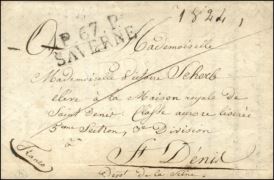 1824
P. 67. P.
SAVERNE
Mademoiselle
Mademoiselle Scherb
élève à la Maison royale de
Saint Denis. Classe aurore lisérée
5ème Section, 3e Division
à
St Dénis
Dépt de la Seine.
franco